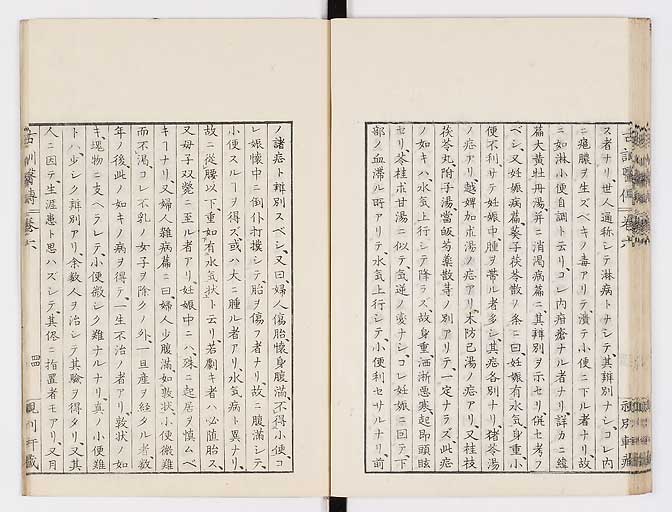 ス者ナリ、世人通称シテ淋病トナシテ其辨別ナシ、コレ内
ニ瘡膿ヲ生ズベキノ毒アリテ、潰テ小便ニ下ル者ナリ、故
ニ如淋小便自調ト云リ、コレ内疳瘡ナル者ナリ、詳カニ
篇大黄牡丹湯、并ニ消渇病篇ニ其辨別ヲ示セリ、併セ考フ
ベシ、又妊娠病篇葵子茯苓散ノ条ニ曰、妊娠有水気身重小
便不利、サテ妊娠中腫ヲ帯ル者多シ、其症各別ナリ、猪苓湯
ノ症アリ、越婢加朮湯ノ症アリ、木防已湯ノ症アリ、又桂枝
茯苓丸、附子湯、當皈芍薬散等ノ別アリテ、一定ナラズ、此症
ノ如キハ、水気上行シテ降ラズ、故身重洒淅悪寒起即頭眩
セリ、苓桂朮甘湯ニ似テ気逆ノ変ナシ、コレ妊娠ニ因テ、下
部ノ血滞ル時アリテ、水気上行シテ小便利セサルナリ、前
ノ諸症ト辨別スベシ、又曰、婦人傷胎懐身腹満不得小便、コ
レ娠懐中ニ倒仆打撲シテ胎ヲ傷フ者ナリ、故ニ腹満シテ、
小便スルヿヲ得ズ、或ハ大ニ腫ル者アリ、水気病ト異ナリ、
故ニ従腰以下重如有水気状ト云リ、若劇キ者ハ必堕胎ス、
又母子双斃ニ至ル者アリ、妊娠中ニハ、殊ニ起居ヲ慎ムベ
キヿナリ、又婦人雑病篇ニ曰、婦人少腹満如敦状小便微難
而不渇、コレ不乳ノ女子ヲ除クノ外、一旦産ヲ経タル者数
年ノ後、此ノ如キノ病ヲ得テ、一生不治ノ者アリ、敦状ノ如
キ、塊物ニ支ヘラレテ、小便微シク難ナルナリ、真ノ小便難
トハ、少シク辨別アリ、余数人ヲ治シテ其験ヲ得タリ、又其
人ニ因テ、生涯患ト思ハズシテ、其侭ニ指置者モアリ、又月